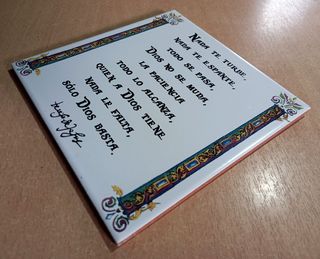 Nada te turbe,
nada te espante,
todo se pasa,
Dios no se muda,
la paciencia
todo lo alcanza,
quien a Dios tiene
nada le falta.
Sólo Dios basta.